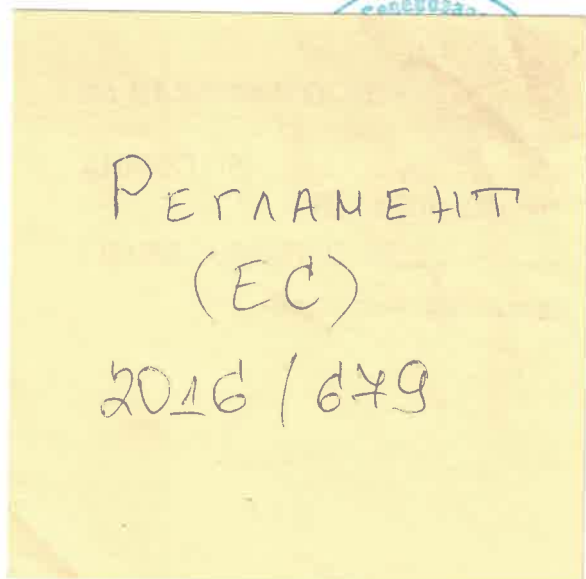 РЕГЛАМЕНТ
(ЕС)
2016 / 679